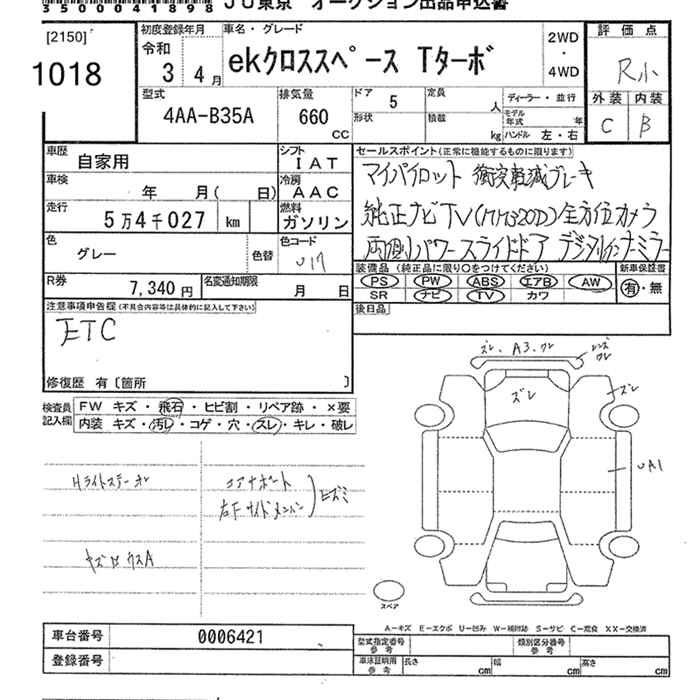 35000418​98 JU東京 オークション出品申込書
[2150]
1018
初度登録年月
令和
3年 4月
車名・グレード
ekクロススペース Tターボ
2WD
・
4WD
評価点
R小
外装 内装
C B
型式
4AA-B35A
排気量
660
CC
ドア 5
形状
定員 人
積載 kg
ディーラー・並行
モデル年式 年
ハンドル 左・右
車歴
自家用
シフト
IAT
車検
年 月( 日)
冷房
AAC
走行
5万4千027 km
燃料
ガソリン
色
グレー
色替
色コード
U17
R券
7,340円
名変通知期限
月 日
セールスポイント(正常に機能するものに限ります)
マイパイロット 衝突軽減ブレーキ
純正ナビTV(MM320D)全方位カメラ
両側パワースライドドア デジタルインナーミラー
装備品 (純正品に限り○をつけてください)
新車保証書
PS PW ABS エアB AW
有・無
SR ナビ TV カワ
後日品
注意事項申告欄(不具合内容等は具体的に記入して下さい)
ETC
修復歴 有〔箇所 〕
検査員記入欄
FW キズ・飛石・ヒビ割・リペア跡・×要
内装 キズ・汚レ・コゲ・穴・スレ・キレ・破レ
コアサポート
右Fサイドメンバー
ズレ、A3、ワレ
ズレ
ズレ
UA1
スペア
A-キズ E-エクボ U-凹み W-補修跡 S-サビ C-腐食 XX-交換済
車台番号
0006421
登録番号
型式指定番号
参考
類別区分番号
参考
車庫証明用
参考
長さ cm
幅 cm
高さ cm